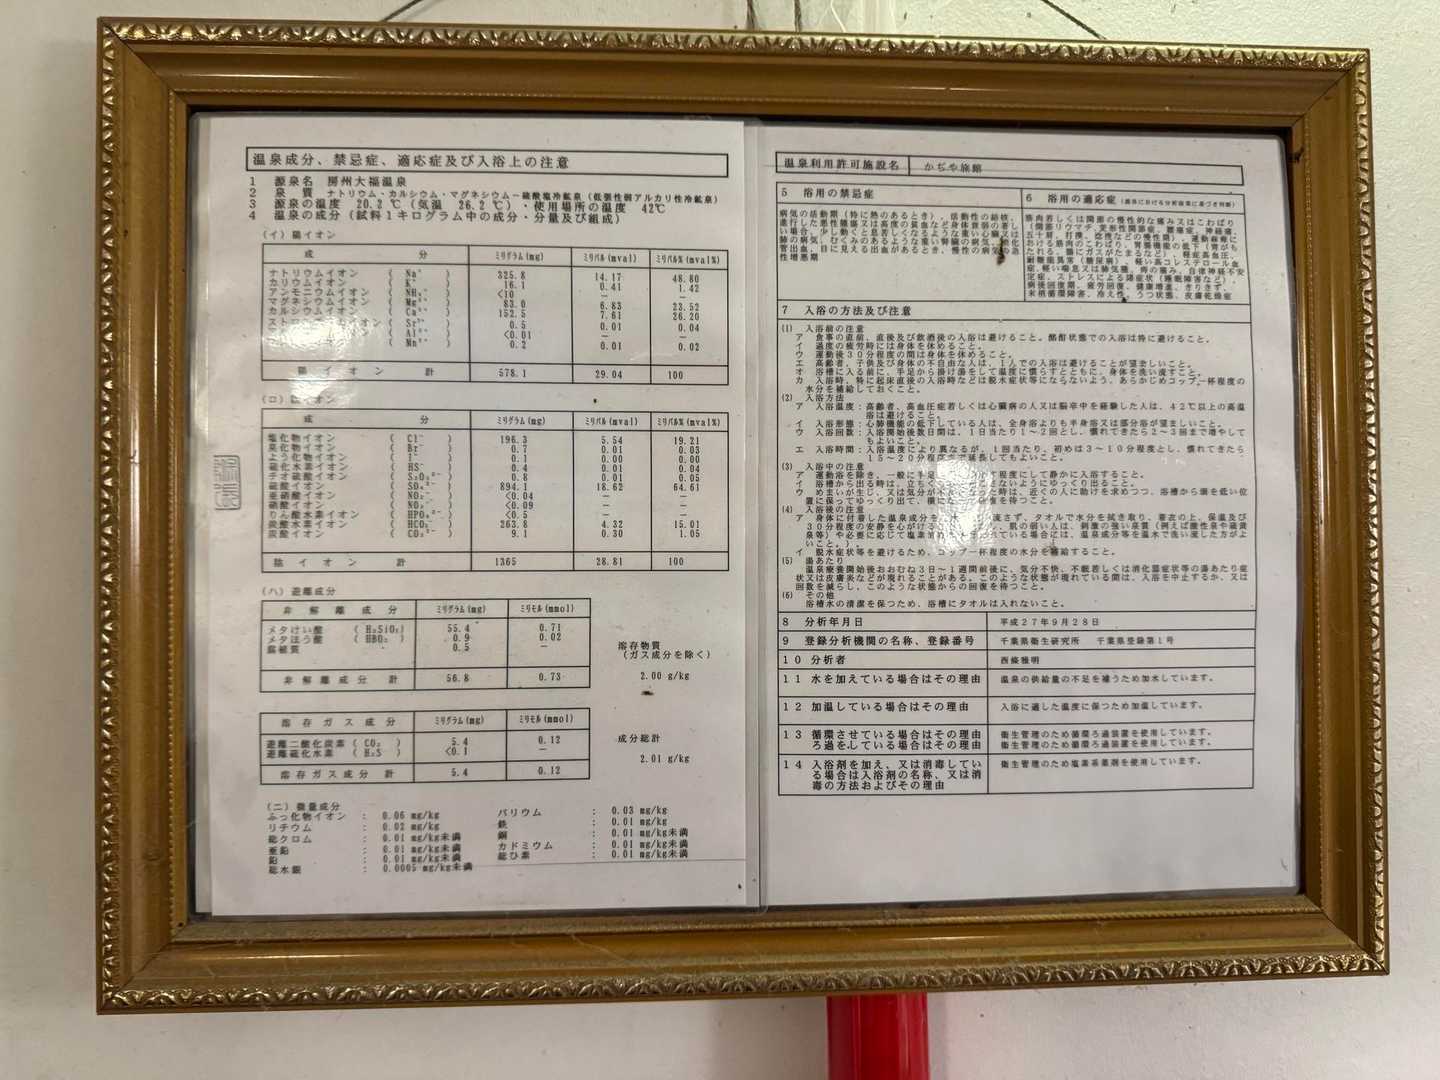 温泉成分、禁忌症、適応症及び入浴上の注意
1 源泉名 房州大福温泉
2 泉質 ナトリウム・カルシウム・マグネシウム－硫酸塩冷鉱泉（低張性弱アルカリ性冷鉱泉）
3 源泉の温度 20.2℃（気温 26.2℃）・使用場所の温度 42℃
4 温泉の成分（試料1キログラム中の成分・分量及び組成）
（イ）陽イオン
成分 ミリグラム(mg) ミリバル(mval) ミリバル%(mval%)
ナトリウムイオン （Na⁺） 325.8 14.17 48.80
カリウムイオン （K⁺） 16.1 0.41 1.42
アンモニウムイオン （NH₄⁺） <10 －
マグネシウムイオン （Mg²⁺） 83.0 6.83 23.52
カルシウムイオン （Ca²⁺） 152.5 7.61 26.20
イオン （Sr²⁺） 0.5 0.01 0.04
（Al³⁺） <0.01 － －
（Mn²⁺） 0.2 0.01 0.02
陽イオン計 578.1 29.04 100
（ロ） イオン
成分 ミリグラム(mg) ミリバル(mval) ミリバル%(mval%)
塩化物イオン （Cl⁻） 196.3 5.54 19.21
臭化物イオン （Br⁻） 0.7 0.01 0.03
よう化物イオン （I⁻） 0.1 0.00 0.00
硫化水素イオン （HS⁻） 0.4 0.01 0.04
チオ硫酸イオン （S₂O₃²⁻） 0.8 0.01 0.05
硫酸イオン （SO₄²⁻） 894.1 18.62 64.61
亜硝酸イオン （NO₂⁻） <0.04 － －
硝酸イオン （NO₃⁻） <0.09 － －
りん酸水素イオン （HPO₄²⁻） <0.5 － －
炭酸水素イオン （HCO₃⁻） 263.8 4.32 15.01
炭酸イオン （CO₃²⁻） 9.1 0.30 1.05
陰イオン計 1365 28.81 100
（ハ）遊離成分
非解離成分 ミリグラム(mg) ミリモル(mmol)
メタけい酸 （H₂SiO₃） 55.4 0.71
メタほう酸 （HBO₂） 0.9 0.02
腐植質 0.5 －
非解離成分計 56.8 0.73
溶存物質
（ガス成分を除く）
2.00 g/kg
溶存ガス成分 ミリグラム(mg) ミリモル(mmol)
遊離二酸化炭素（CO₂） 5.4 0.12
遊離硫化水素（H₂S） <0.1 －
溶存ガス成分計 5.4 0.12
成分総計
2.01 g/kg
（ニ）微量成分
ふっ化物イオン : 0.06 mg/kg
リチウム : 0.02 mg/kg
総クロム : 0.01 mg/kg未満
亜鉛 : 0.01 mg/kg未満
鉛 : 0.01 mg/kg未満
総水銀 : 0.0005 mg/kg未満
バリウム : 0.03 mg/kg
鉄 : 0.1 mg/kg
銅 : 0.01 mg/kg未満
カドミウム : 0.01 mg/kg未満
総ひ素 : 0.01 mg/kg未満
温泉利用許可施設名 かぢや旅館
5 浴用の禁忌症
病気の活動期（特に熱のあるとき）、活動性の結核、
進行した悪性腫瘍又は高度の貧血など身体衰弱の著し
い場合、少し動くと息苦しくなるような重い心臓又は
肺の病気、むくみのあるような重い腎臓の病気、消化
管出血、目に見える出血があるとき、慢性の病気の急
性増悪期
6 浴用の適応症
筋肉若しくは関節の慢性的な痛み又はこわばり
（関節リウマチ、変形性関節症、腰痛症、神経痛、
五十肩、打撲、捻挫などの慢性期）、運動麻痺に
おける筋肉のこわばり、胃腸機能の低下（胃がも
たれる、腸にガスがたまるなど）、軽症高血圧、
耐糖能異常（糖尿病）、軽い高コレステロール血
症、軽い喘息又は肺気腫、痔の痛み、自律神経不安
定症、ストレスによる諸症状（睡眠障害など）、
病後回復期、疲労回復、健康増進、きりきず、
末梢循環障害、冷え性、うつ状態、皮膚乾燥症
7 入浴の方法及び注意
(1) 入浴前の注意
ア 食事の直前、直後及び飲酒後の入浴は避けること。酩酊状態での入浴は特に避けること。
イ 過度の疲労時には身体を休めること。
ウ 運動後30分程度の間は身体を休めること。
エ 高齢者、子供及び身体の不自由な人は、1人での入浴は避けることが望ましいこと。
オ 浴槽に入る前に、手足から掛け湯をして温度に慣らすとともに、身体を洗い流すこと。
カ 入浴時、特に起床直後の入浴時などは脱水症状等にならないよう、あらかじめコップ一杯程度の
水分を補給しておくこと。
(2) 入浴方法
ア 入浴温度：高齢者、高血圧症若しくは心臓病の人又は脳卒中を経験した人は、42℃以上の高温
浴は避けること。
イ 入浴形態：心肺機能の低下している人は、全身浴よりも半身浴又は部分浴が望ましいこと。
ウ 入浴回数：入浴開始後数日間は、1日当たり1～2回とし、慣れてきたら2～3回まで増やして
もよいこと。
エ 入浴時間：入浴温度により異なるが、1回当たり、初めは3～10分程度とし、慣れてきたら
15～20分程度まで延長してもよいこと。
(3) 入浴中の注意
ア 運動浴を除き、一般に手足 程度にして静かに入浴すること。
イ 浴槽から出る時は、立ちく さないようにゆっくり出ること。
ウ めまいが生じ、又は気分が不 なった時は、近くの人に助けを求めつつ、浴槽から頭を低い位
置に保ってゆっくり出て、横に を待つこと。
(4) 入浴後の注意
ア 身体に付着した温泉成分を 流さず、タオルで水分を拭き取り、着衣の上、保温及び
30分程度の安静を心がける 、肌の弱い人は、刺激の強い泉質（例えば酸性泉や硫黄
泉等）や必要に応じて塩素消 れている場合には、温泉成分等を温水で洗い流した方がよ
いこと。）
イ 脱水症状等を避けるため、コップ一杯程度の水分を補給すること。
(5) 湯あたり
温泉療養開始後おおむね3日～1週間前後に、気分不快、不眠若しくは消化器症状等の湯あたり症
状又は皮膚炎などが現れることがある。このような状態が現れている間は、入浴を中止するか、又は
回数を減らし、このような状態からの回復を待つこと。
(6) その他
浴槽水の清潔を保つため、浴槽にタオルは入れないこと。
8 分析年月日 平成27年9月28日
9 登録分析機関の名称、登録番号 千葉県衛生研究所 千葉県登録第1号
10 分析者 西條雅明
11 水を加えている場合はその理由 温泉の供給量の不足を補うため加水しています。
12 加温している場合はその理由 入浴に適した温度に保つため加温しています。
13 循環させている場合はその理由 衛生管理のため循環ろ過装置を使用しています。
ろ過をしている場合はその理由 衛生管理のため循環ろ過装置を使用しています。
14 入浴剤を加え、又は消毒してい 衛生管理のため塩素系薬剤を使用しています。
る場合は入浴剤の名称、又は消
毒の方法およびその理由